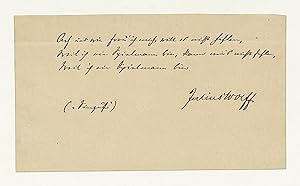 Ach und wie freu' ich mich, will es nicht fehlen,
Weil ich ein Spielmann bin, kann mir's nicht fehlen,
Weil ich ein Spielmann bin.
(„Singuf“)
Julius Wolff